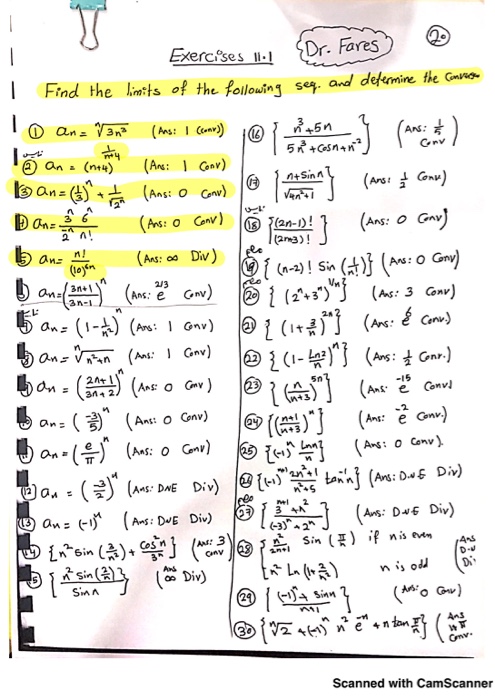 Exercises 11.1
Dr. Fares
20
Find the limits of the following seq. and determine the
① an = ⁿ√3n³ (Ans: 1 Conv)
② an = (n+4)^(1/(n+4)) (Ans: 1 Conv)
③ an = (1/3)ⁿ + 1/√2ⁿ (Ans: 0 Conv)
an = 3ⁿ 6ⁿ / 2⁻ⁿ n! (Ans: 0 Conv)
an = n!/(10)^6n (Ans: ∞ Div)
an = ((3n+1)/(3n-1))ⁿ (Ans: e^(2/3) Conv)
an = (1 - 1/n²)ⁿ (Ans: 1 Conv)
an = ⁿ√n²+n (Ans: 1 Conv)
an = ((2n+1)/(3n+2))ⁿ (Ans: 0 Conv)
an = (-3/5)ⁿ (Ans: 0 Conv)
an = (e/π)ⁿ (Ans: 0 Conv)
12 an = (-3/2)ⁿ (Ans: DNE Div)
13 an = (-1)ⁿ (Ans: DNE Div)
14 {n² Sin(3/n²) + cos²n/3ⁿ} (Ans: 3 Conv)
15 {n² Sin(2/n)/Sin n} (Ans ∞ Div)
⑯ {(n³+5n)/(5n³+cosn+n⁻²)} (Ans: 1/5 Conv)
⑰ {(n+Sin n)/√4n²+1} (Ans: 1/2 Conv)
⑱ {(2n-1)!/(2n+3)!} (Ans: 0 Conv)
⑲ {(n-2)! Sin(1/n!)} (Ans: 0 Conv)
⑳ {(2ⁿ+3ⁿ)^(1/n)} (Ans: 3 Conv)
㉑ {(1+3/n)^2n} (Ans: e⁶ Conv)
㉒ {(1 - Ln2/n)ⁿ} (Ans: 1/2 Conv.)
㉓ {(n/(n+3))^5n} (Ans: e⁻¹⁵ Conv)
㉔ {((n+1)/(n+3))ⁿ} (Ans: e⁻² Conv.)
㉕ {(-1)ⁿ Ln n/n} (Ans: 0 Conv).
㉖ {(-1)ⁿ⁺¹ (2n²+1)/(n²+5) tan⁻¹n} (Ans: D.N.E Div)
㉗ {(3ⁿ⁺¹+n²)/((-3)ⁿ+2ⁿ)} (Ans: D.N.E Div)
㉘ { n²/(2n+1) Sin(π/n) if n is even
n² Ln(1+ /n²) n is odd (Ans D.N Di
㉙ {((-1)ⁿ + Sin n)/(n+1)} (Ans: 0 Conv)
㉚ {ⁿ√2 + (-1)ⁿ n² e⁻ⁿ + n tan π/n} (Ans 1+π Conv.
Scanned with CamScanner